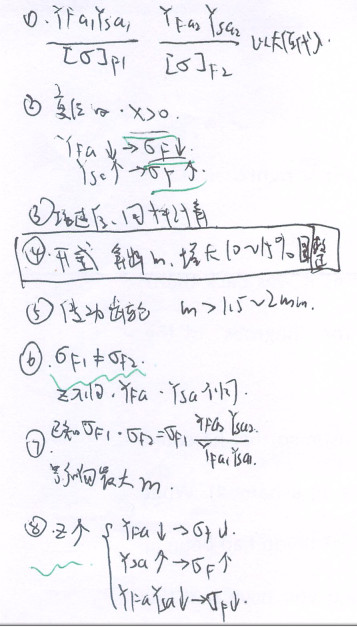 ①. YFa1YSa1/[σ]F1 YFa2YSa2/[σ]F2 以大值代入.
② 变位 · X>0.
YFa↓→σF↓.
YSa↑→σF↑.
③
④. 开式 算出m. 增大10~15% 圆整
⑤ 传动齿轮 m>1.5~2mm.
⑥. σF1≠σF2.
z不同. YFa · YSa不同.
⑦ 已知σF1 · σF2=σF1 YFa2YSa2/YFa1YSa1.
最大m.
⑧. z↑ { YFa↓→σF↓.
YSa↑→σF↑
YFaYSa↓→σF↓.